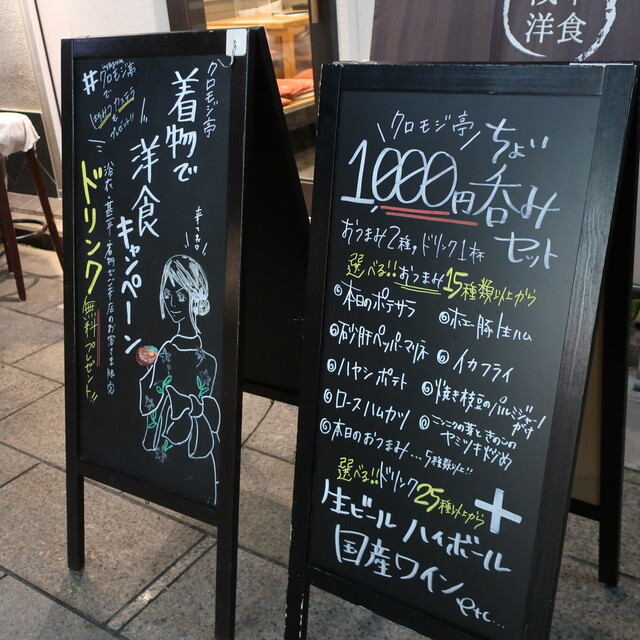 洋食
#
クロモジ亭
で
クロモジ亭
着物で
洋食
キャンペーン
ドリンク
無料プレゼント!!
クロモジ亭
ちょい
1,000円呑み
セット
おつまみ2種、ドリンク1杯
選べる!!おつまみ15種類以上から
本日のポテサラ
ホエー豚生ハム
砂肝ペッパーマリネ
イカフライ
ハヤシポテト
焼き枝豆のパルミジャーノ
がけ
ロースハムカツ
ニンニクの芽ときのこの
ヤミツキ炒め
本日のおつまみ…5種類以上!!
選べる!!ドリンク25種以上から
+
生ビール ハイボール
国産ワイン
etc...